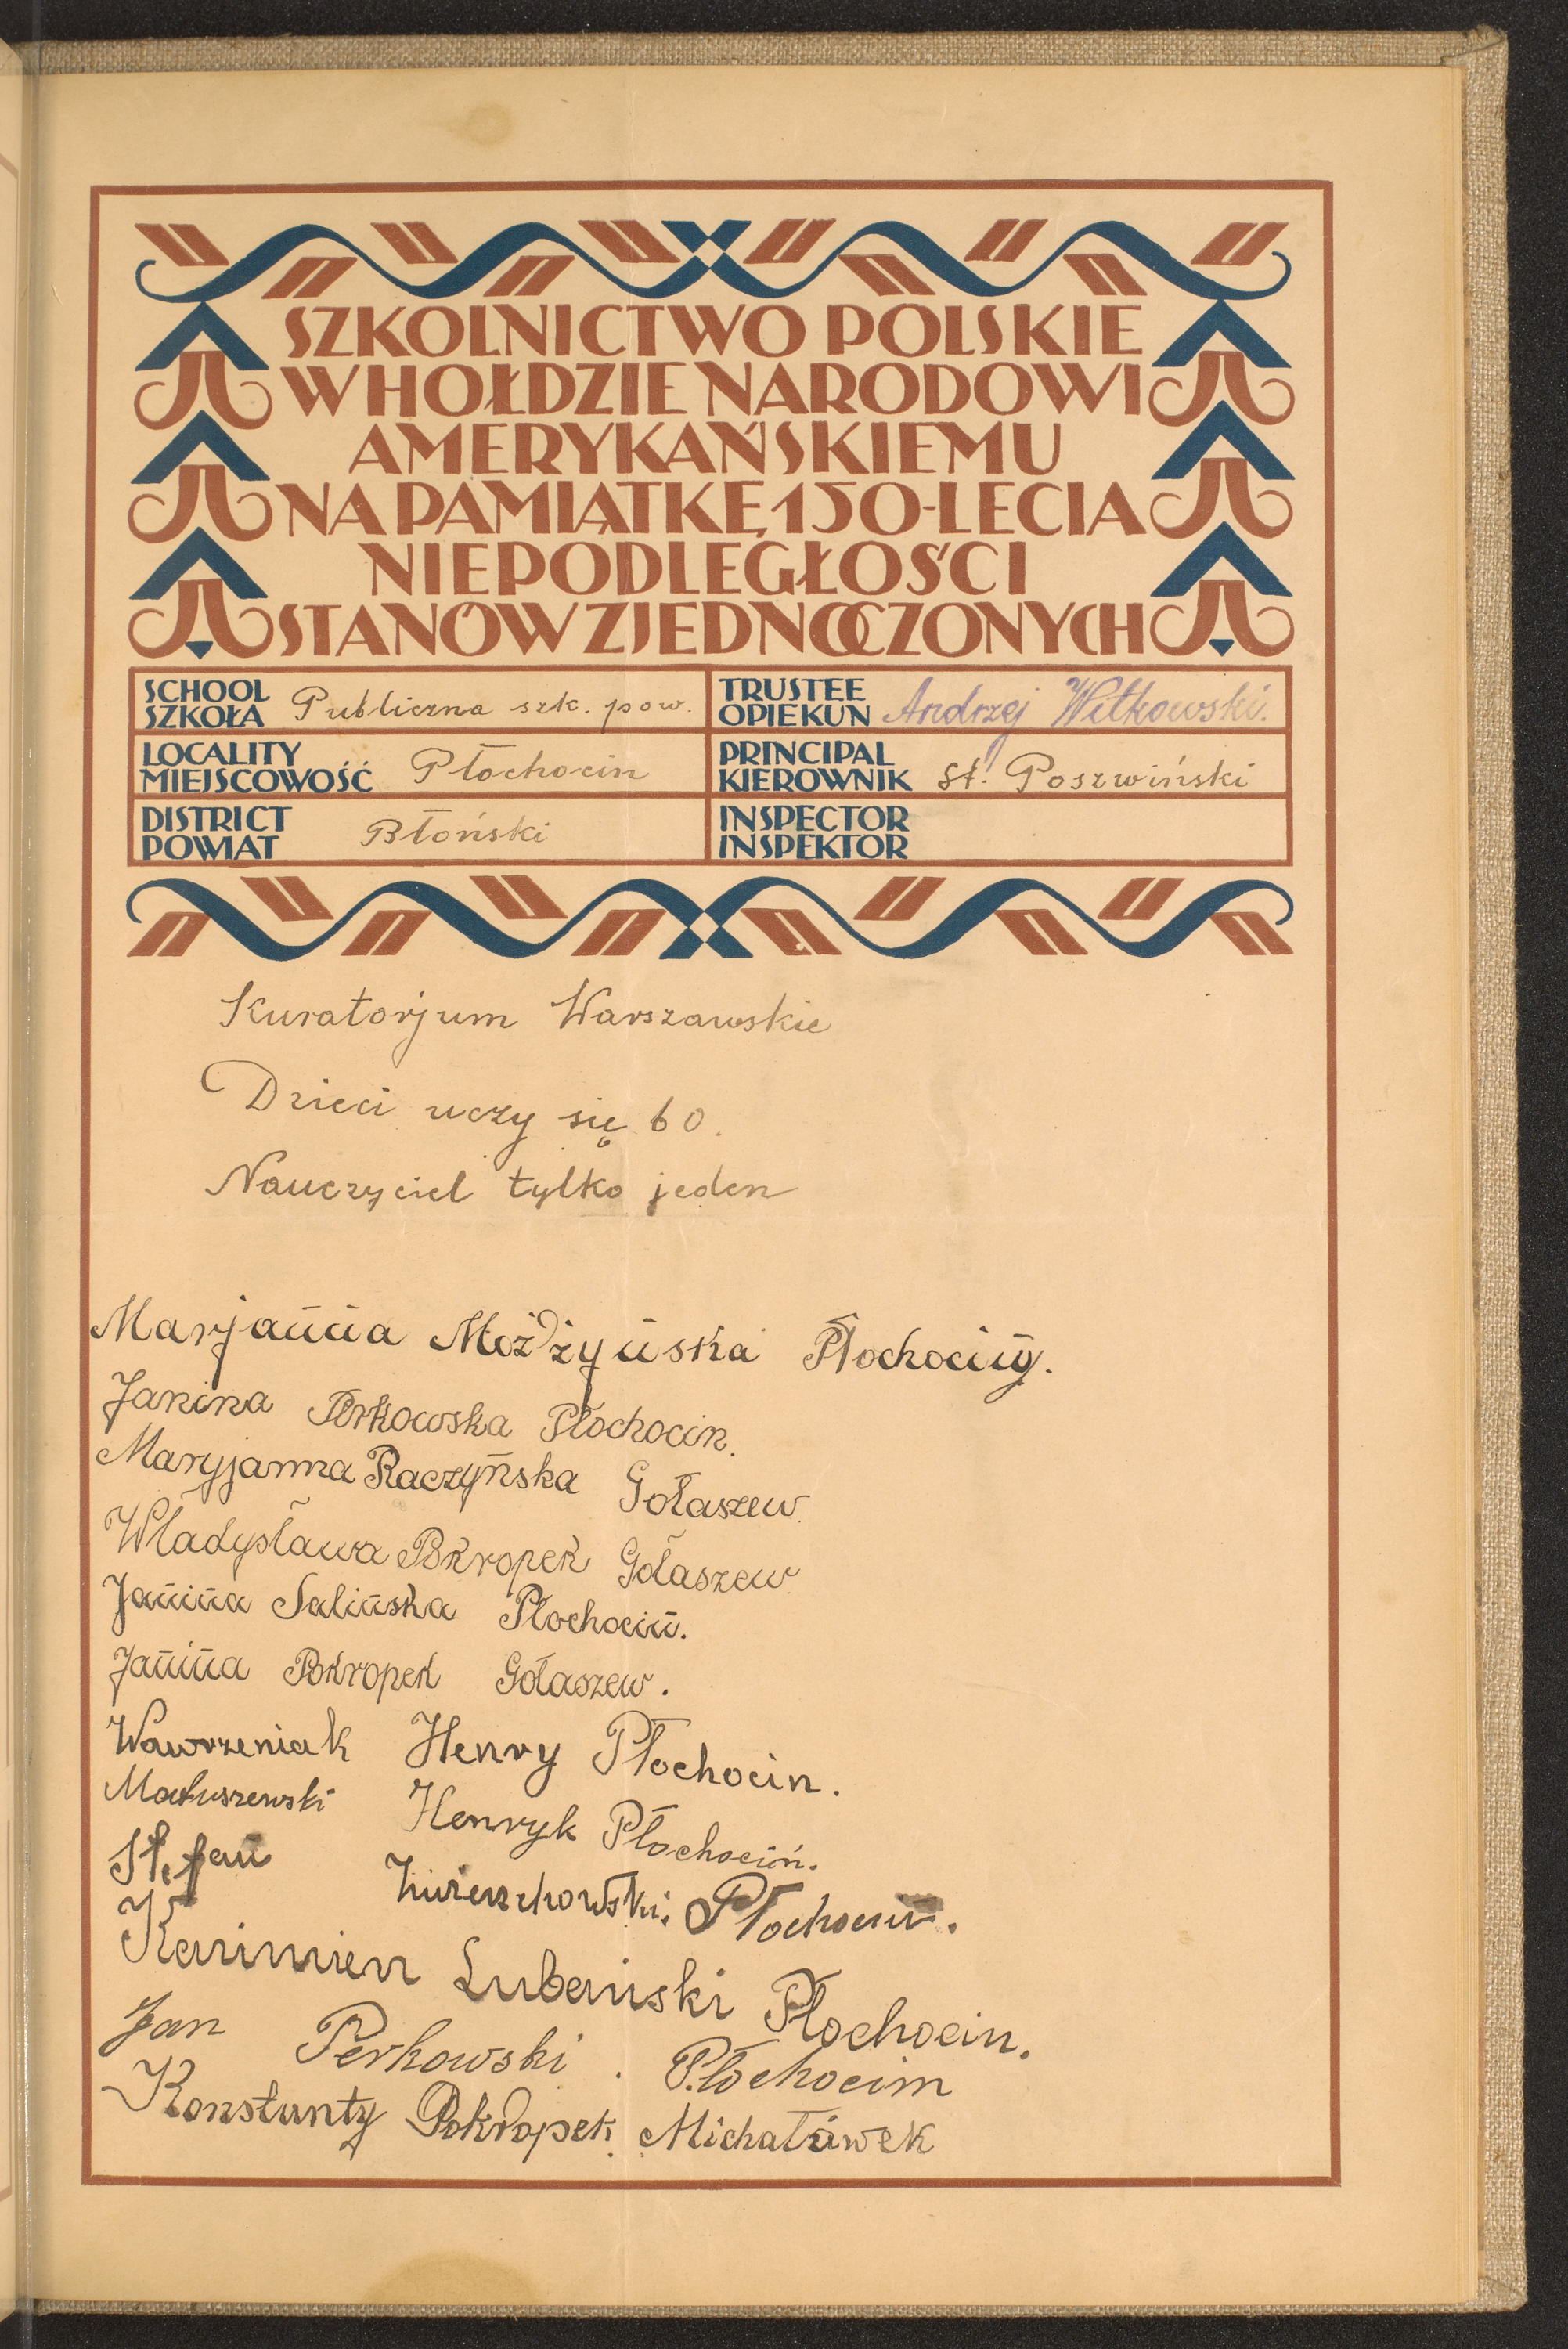 SZKOLNICTWO POLSKIE
W HOŁDZIE NARODOWI
AMERYKAŃSKIEMU
NA PAMIĄTKĘ 150-LECIA
NIEPODLEGŁOŚCI
STANÓW ZJEDNOCZONYCH
SCHOOL
SZKOŁA Publiczna szk. pow.
TRUSTEE
OPIEKUN Andrzej Witkowski.
LOCALITY
MIEJSCOWOŚĆ Płochocin
PRINCIPAL
KIEROWNIK St. Poszwiński
DISTRICT
POWIAT Błoński
INSPECTOR
INSPEKTOR
Kuratorjum Warszawskie
Dzieci uczy się 60.
Nauczyciel tylko jeden
Marjanna Możdżyńska Płochociny.
Janina Perkowska Płochocin.
Maryjanna Raczyńska Gołaszew
Władysława Pokropek Gołaszew
Janina Salińska Płochocin.
Janina Pokropek Gołaszew.
Wawrzeniak Henry Płochocin.
Matuszewski Henryk Płochocin.
Stefan Płochocin.
Kazimierz Lubański Płochocin.
Jan Perkowski. Płochocim
Konstanty Pokropek Michałówek